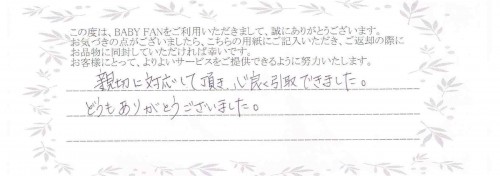 この度は、BABY FANをご利用いただきまして、誠にありがとうございます。
お気づきの点がございましたら、こちらの用紙にご記入いただき、ご返却の際に
お品物に同封していただければ幸いです。
お客様にとって、よりよいサービスをご提供できるように努力いたします。
親切に対応して頂き、心良く引取できました。
どうもありがとうございました。